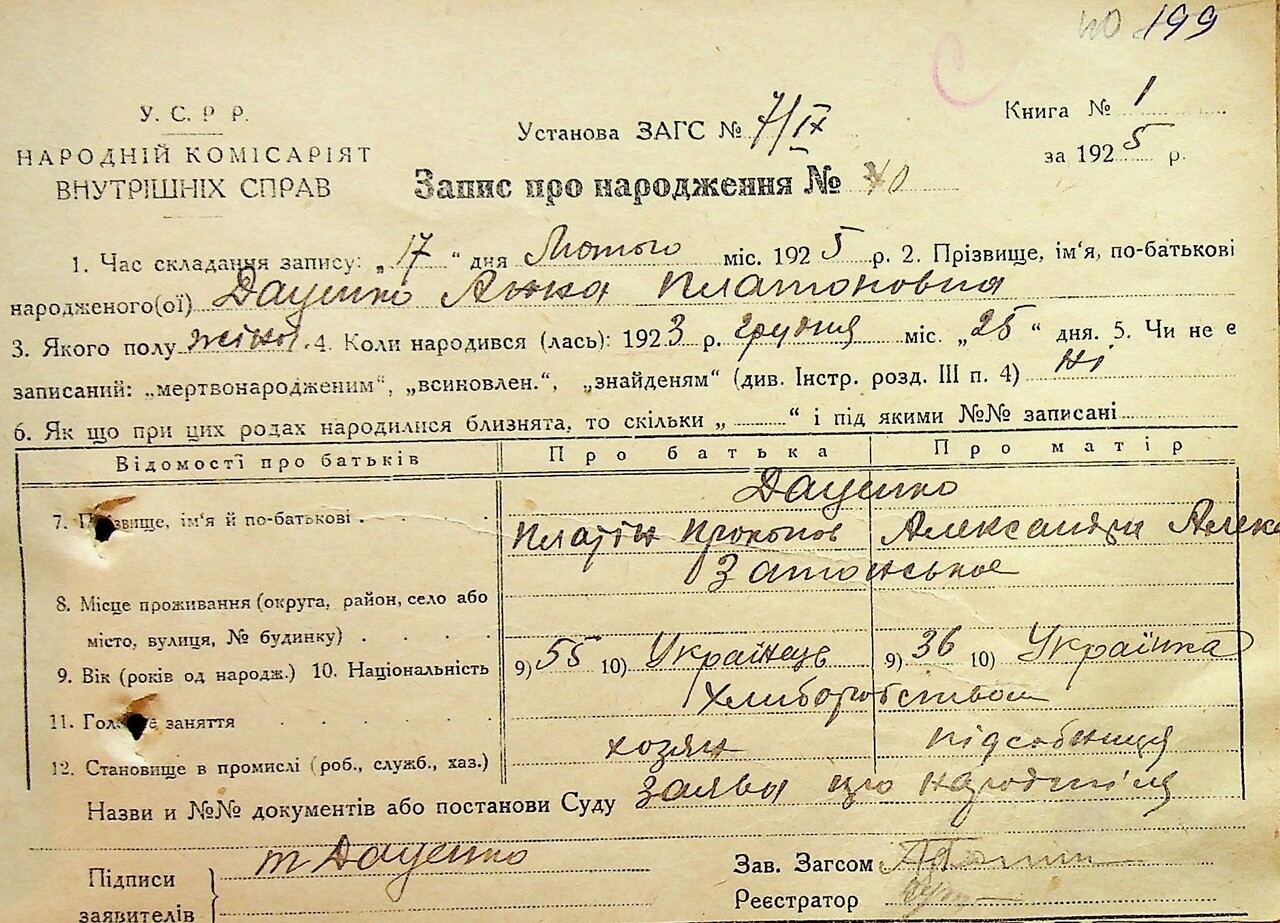 199
У. С. Р Р.
НАРОДНІЙ КОМІСАРІЯТ
ВНУТРІШНІХ СПРАВ
Установа ЗАГС № 7/IX
Книга № 1
за 1925 р.
Запис про народження № 40
1. Час складання запису: „17“ дня Лютого міс. 1925 р. 2. Прізвище, ім‘я, по-батькові
народженого(ої) Даценко Анна Платоновна
3. Якого полу жіноч. 4. Коли народився (лась): 1923 р. грудня міс. „25“ дня. 5. Чи не є
записаний: „мертвонародженим“, „всиновлен.“, „знайденям“ (див. Інстр. розд. III п. 4) Ні
6. Як що при цих родах народилися близнята, то скільки „ “ і під якими №№ записані
Відомості про батьків Про батька Про матір
Даценко
7. Прізвище, ім‘я й по-батькові Платін Прокопов Александра Алекс
Затонське
8. Місце проживання (округа, район, село або
місто, вулиця, № будинку)
9. Вік (років од народж.) 10. Національність 9) 55 10) Українець 9) 36 10) Українка
Хлиборобством
11. Головне заняття
хозяін підсобниця
12. Становище в промислі (роб., служб., хаз.)
Назви и №№ документів або постанови Суду Заява про народження
Підписи
заявителів
Даценко
Зав. Загсом
Реєстратор